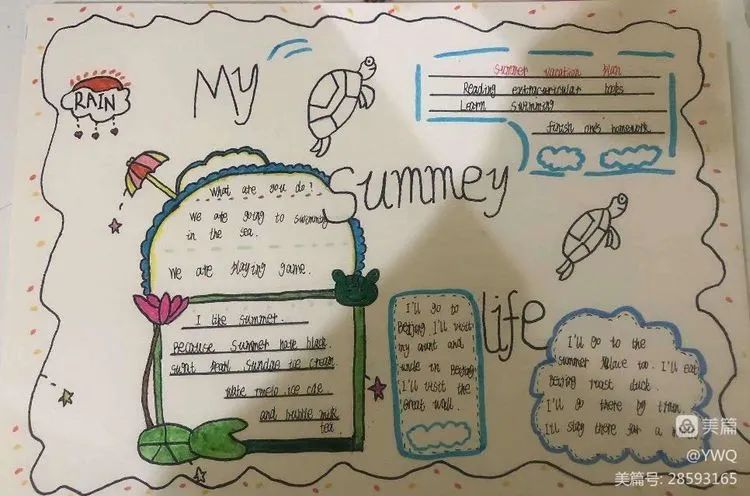 My
Summey
life
RAIN
Summer vacation plan
Reading extracurricular books
Learn swimming
finish one's homework
What are you do!
We are going to swimming
in the sea.
We are playing game.
I like summer.
Because summer have black.
ice cream
ice
and bubble milk
tea.
I'll go to
Beijing. I'll visit
my aunt and
uncle in Beijing
I'll visit the
Great wall.
I'll go to the
summer palace too. I'll eat
Beijing roast duck
I'll go there by train.
I'll stay there for a
美篇
@YWQ
美篇号: 28593165